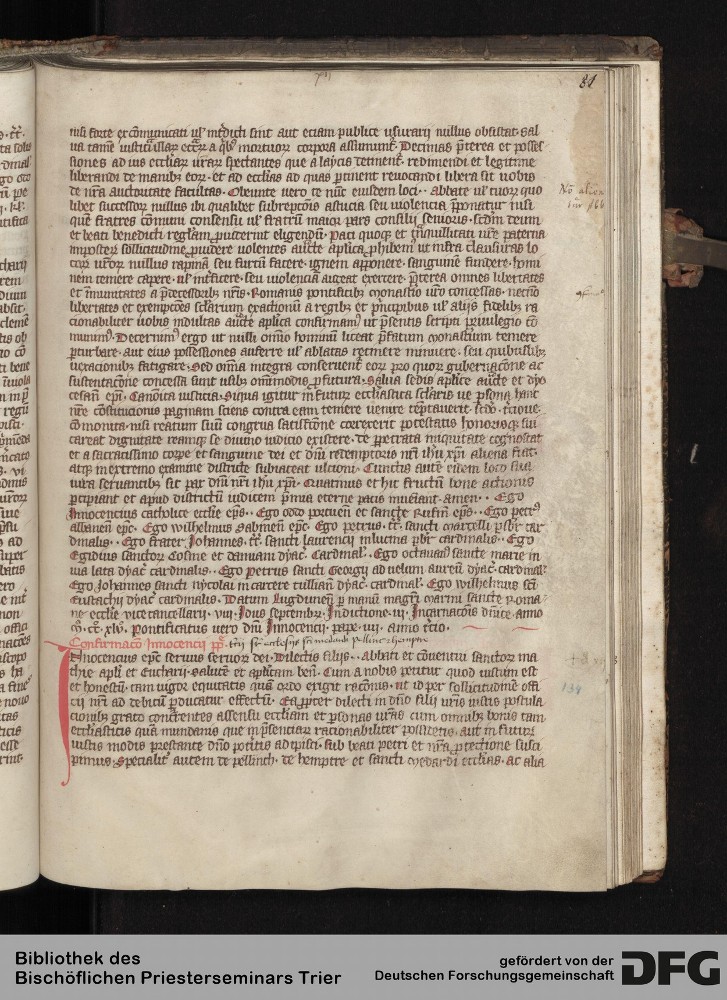 81
nisi forte excōmunicati ul' int̄dicti sint aut eciam publice usurarij nullus obsistat. sal
ua tamē iusticia illar eccl'ar a qibꝫ mortuor corpora assumunt̄. Decimas p̄terea et posses
siones ad ius eccl'iar urar spectantes que a laycis detinent̄. redimendi et legitime
liberandi de manibꝫ eor. et ad eccl'ias ad quas ptinent reuocandi libera sit uobis
de nr̄a auctoritate facultas. Obeunte uero te nūc eiusdem loci abbate ul' tuor quo
libet successor nullus ibi qualibet subreptōis astucia seu uiolencia p̄ponatur nisi
quē fratres cōmuni consensu ul' fratrū maior pars consilij senioris. scdm deum
et beati benedicti regl'am puiderint eligendū. Paci quoqꝫ et tnquillitati ur̄e paterna
imposter sollicitudine puidere uolentes aucte aplica phibem ut infra clausuras lo
cor uror nullus rapinā seu furtū facere. ignem apponere. sanguinē fundere. homi
nem temere capere. ul' int̄ficere. seu uiolenciā audeat exercere. p̄terea omnes libertates
et īmunitates a p̄decessoribꝫ nr̄is Romanis pontificibꝫ monast'io uro concessas. necnō
libertates et exempcōes sclarium exactionū a regibꝫ et principibꝫ ul' alijs fidelibꝫ ra
cionabiliter uobis indultas aucte aplica confirmam ut p̄sentis scripti priuilegio cō
munim. Decernim ergo ut nulli omnio hominū liceat p̄fatum monasterium temere
pturbare. aut eius possessiones auferre ul' ablatas retinere minuere. seu quibuslibꝫ
uexacionibꝫ fatigare. Sed omnia integra conseruent̄ eor pro quor gubernacōne ac
sustentacōne concessa sunt usibꝫ omnimodis pfutura. Salua sedis aplice aucte et dyo
cesani epc. Canonica iusticia. Siqua igitur in futur ecclesiastica sclaris ue psona hanc
nr̄e cōstitucionis paginam sciens contra eam temere uenire temptauerit. scdo. tcioue.
cōmonita. nisi reatum suū congrua satisfcōne correxerit potestatis honorisqꝫ sui
careat dignitate reamqꝫ se diuino iudicio existere. de perpetrata iniquitate cognoscat
et a sacratissimo corpe et sanguine dei et dni redemptoris nri ihu xpi aliena fiat.
atqꝫ in extremo examine districte subiaceat ulcioni. Cunctis aut̄ eidem loco sua
iura seruantibꝫ sit pax dni nri ihu xpi. Quatinus et hic fructū bone actionis
pcipiant et apud districtū iudicem p̄mia eterne pacis inueniant. amen. Ego
Innocencius catholice eccl'ie eps. Ego otto portuen et sancte Rufin eps. Ego petr
albanen epc. Ego wilhelmus Sabinen epc. Ego petrus. tt. sancti marcelli psbr car
dinalis. Ego frater Johannes. tt. sancti laurencij in lucina pbr cardinalis. Ego
Egidius sanctor Cosme et damiani dyac. Cardinal'. Ego octauian sancte marie in
uia lata dyac cardinalis. Ego petrus sancti Georgij ad uelum aureū dyac. cardinal'
Ego Johannes sancti nycolai in carcere tulliano dyac. cardinal'. Ego wilhelmus sci
Eustachij dyac cardinalis. Datum Lugdunen p manū magri marini sancte Roma
ne eccl'ie vice cancellarij. viij. Idus septembr. Indictione. iij. Incarnacōis dnice. anno
m. cc. xlv. Pontificatus uero dni Innocencij pape. iiij. anno tcio.
Confirmacō Innocencij pp
Innocencius epc seruus seruor dei. Dilectis filijs abbati et cōuentui sanctor ma
thie apli et Eucharij. salutē et aplicam ben. Cum a nobis petitur quod iustum est
et honestū. tam uigor equitatis quā ordo exigit racōnis. ut id per sollicitudinē offi
cij nri ad debitū pducatur effectū. Eapropter dilecti in dno filij uris iustis postula
cionibꝫ grato concurrentes assensu eccl'iam et psonas uras cum omnibꝫ bonis tam
eccl'iasticis quā mundanis que in p̄senciar racionabiliter possidetis. aut in futur
iustis modis prestante dno potitis adipisci. sub beati petri et nr̄a ptectione susci
pimus. Specialit' autem de pellinch. de hemptre et sancti Medardi eccl'ias. ac alia
134
Bibliothek des
Bischöflichen Priesterseminars Trier
gefördert von der
Deutschen Forschungsgemeinschaft
DFG